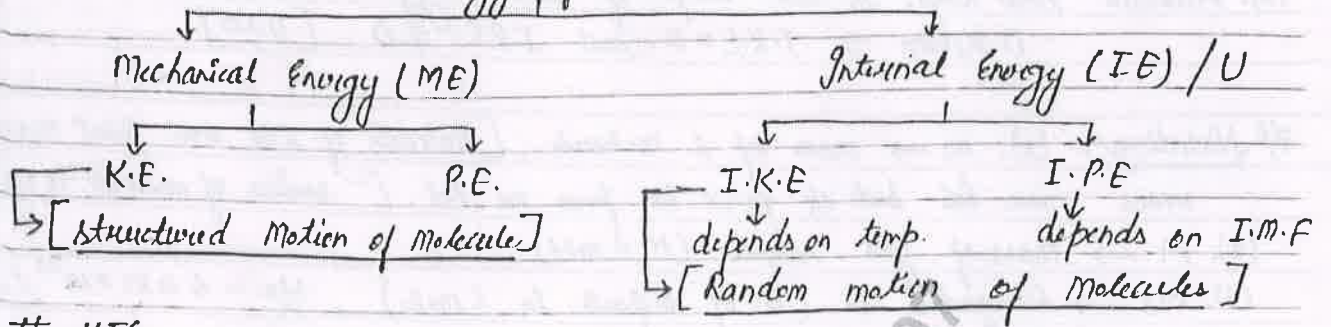 Mechanical Energy (ME) Internal Energy (I.E) / U
K.E. P.E. I.K.E I.P.E
[Structured Motion of Molecule] depends on temp. depends on I.M.F
[Random motion of Molecules]